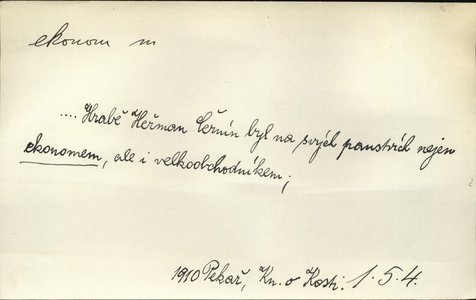 ekonom m
.... Hrabě Heřman Černín byl na svých panstvích nejen
ekonomem, ale i velkoobchodníkem;
1910 Pekař, Kn. o Kosti. 1.54.